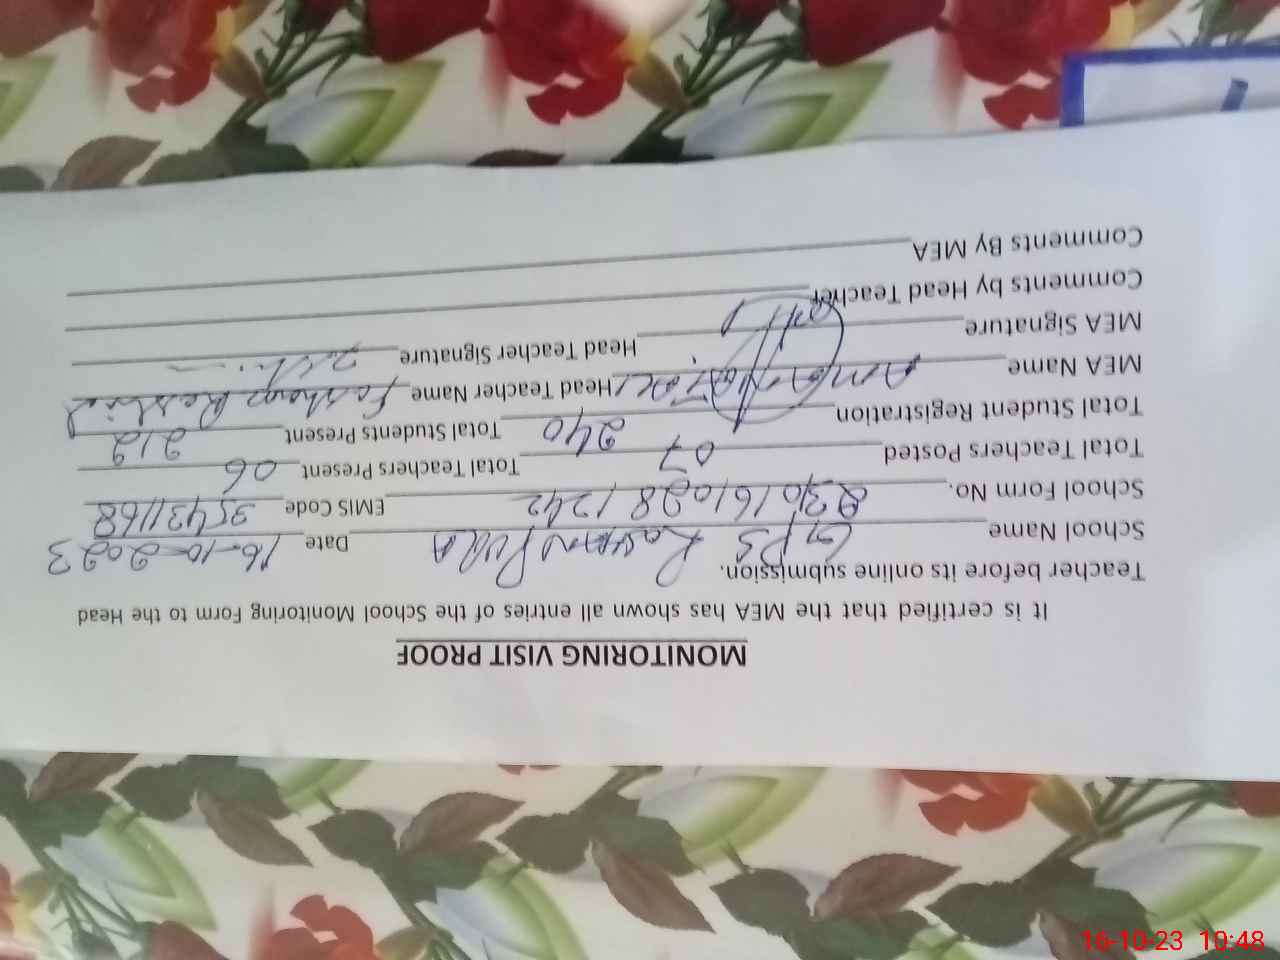 MONITORING VISIT PROOF
It is certified that the MEA has shown all entries of the School Monitoring Form to the Head
Teacher before its online submission.
School Name GPS Pura Date 16-10-2023
School Form No. EMIS Code 35431168
Total Teachers Posted 07 Total Teachers Present 06
Total Student Registration 240 Total Students Present 212
MEA Name Head Teacher Name Rashid
MEA Signature Head Teacher Signature
Comments by Head Teacher
Comments By MEA
16-10-23 10:48